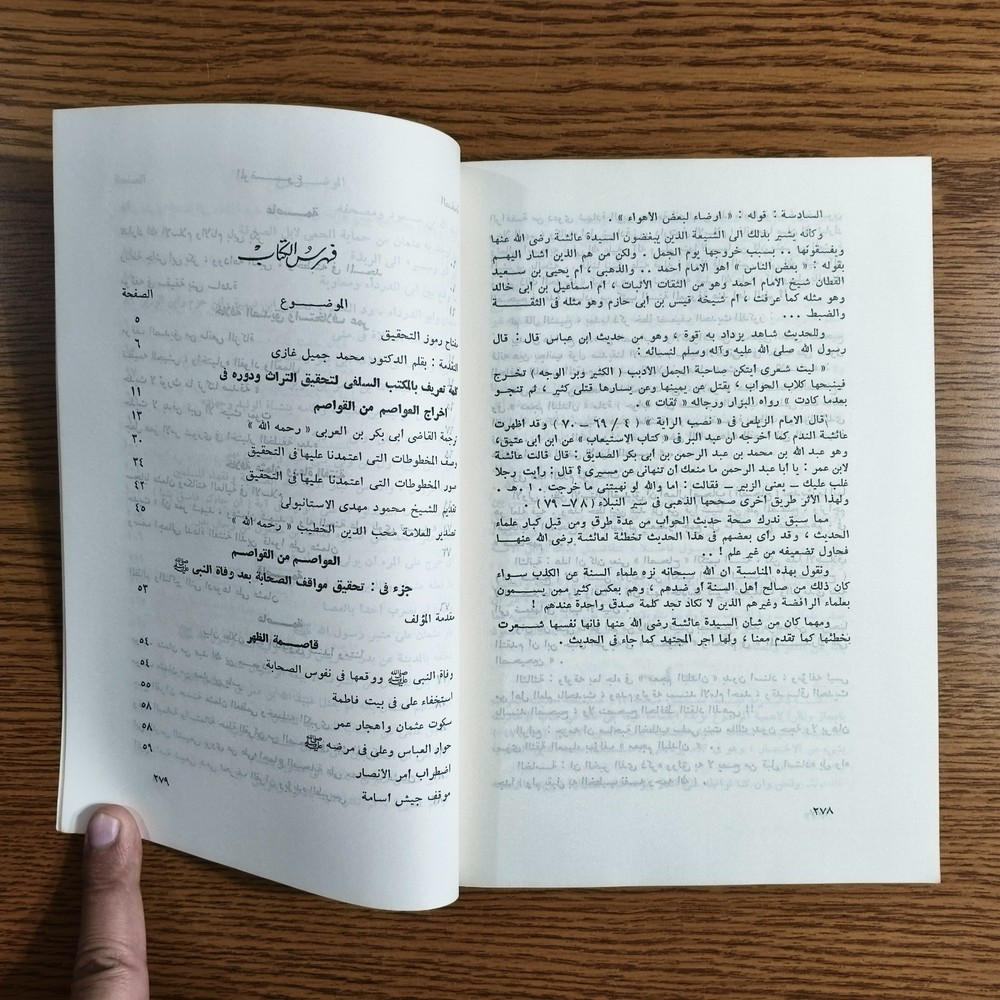 السادسة : قوله : « ارضاء لبعض الأهواء » .
وكأنه يشير بذلك الى الشيعة الذين يبغضون السيدة عائشة رضى الله عنها
ويفسقونها .. بسبب خروجها يوم الجمل . ولكن من هم الذين أشار اليهم
بقوله : « بعض الناس » أهو الامام أحمد .. والذهبى ، أم يحيى بن سعيد
القطان شيخ الامام أحمد وهو من الثقات الأثبات ، أم اسماعيل بن أبى خالد
وهو مثله كما عرفت ، أم شيخه قيس بن أبى حازم وهو مثله فى الثقة
والضبط ...
وللحديث شاهد يزداد به قوة ، وهو من حديث ابن عباس قال : قال
رسول الله صلى الله عليه وآله وسلم لنسائه :
« ليت شعرى أيتكن صاحبة الجمل الأديب ( الكثير وبر الوجه ) تخرج
فينبحها كلاب الحوأب ، يقتل عن يمينها وعن يسارها قتلى كثير ، ثم تنجو
بعدما كادت » رواه البزار ورجاله « ثقات » .
قال الامام الزيلعى فى « نصب الراية » ( ٤ / ٦٩ – ٧٠ ) وقد أظهرت
عائشة الندم كما أخرجه ابن عبد البر فى « كتاب الاستيعاب » عن ابن أبى عتيق،
وهو عبد الله بن محمد بن عبد الرحمن بن أبى بكر الصديق : قال قالت عائشة
لابن عمر : يا أبا عبد الرحمن ما منعك أن تنهانى عن مسيرى ؟ قال : رأيت رجلا
غلب عليك – يعنى الزبير – فقالت : أما والله لو نهيتنى ما خرجت . ا . هـ .
ولهذا الأثر طريق أخرى صححها الذهبى فى سير النبلاء ( ٧٨– ٧٩ ) .
مما سبق ندرك صحة حديث الحوأب من عدة طرق ومن قبل كبار علماء
الحديث ، وقد رأى بعضهم فى هذا الحديث تخطئة لعائشة رضى الله عنها
فحاول تضعيفه من غير علم ! ..
ونقول بهذه المناسبة ان الله سبحانه نزه علماء السنة عن الكذب سواء
كان ذلك من صالح أهل السنة أو ضدهم ، وهم بعكس كثير ممن يسمون
بعلماء الرافضة وغيرهم الذين لا نكاد نجد كلمة صدق واحدة عندهم !
ومهما كان من شأن السيدة عائشة رضى الله عنها فانها نفسها شعرت
بخطئها كما تقدم معنا ، ولها أجر المجتهد كما جاء فى الحديث .
٢٧٨
فهرس الكتاب
الموضـوع الصفحة
مفتاح رموز التحقيق ٥
المقدمة : بقلم الدكتور محمد جميل غازى ٦
كلمة تعريف بالمكتب السلفى لتحقيق التراث ودوره فى
اخراج العواصم من القواصم ١١
ترجمة القاضى أبى بكر بن العربى « رحمه الله » ١٣
وصف المخطوطات التى اعتمدنا عليها فى التحقيق ٣٠
صور المخطوطات التى اعتمدنا عليها فى التحقيق ٣٤
تقديم للشيخ محمود مهدى الاستانبولى ٤٢
تصدير للعلامة محب الدين الخطيب « رحمه الله » ٤٥
العواصم من القواصم
جزء فى : تحقيق مواقف الصحابة بعد وفاة النبى ﷺ
مقدمة المؤلف ٥٣
قاصـمة الظهر
وفاة النبى ﷺ ووقعها فى نفوس الصحابة ٥٤
استخفاء على فى بيت فاطمة ٥٤
سكوت عثمان واهجار عمر ٥٥
حوار العباس وعلى فى مرضه ﷺ ٥٨
اضطراب أمر الأنصار ٥٨
موقف جيش أسامة ٥٩
٢٧٩